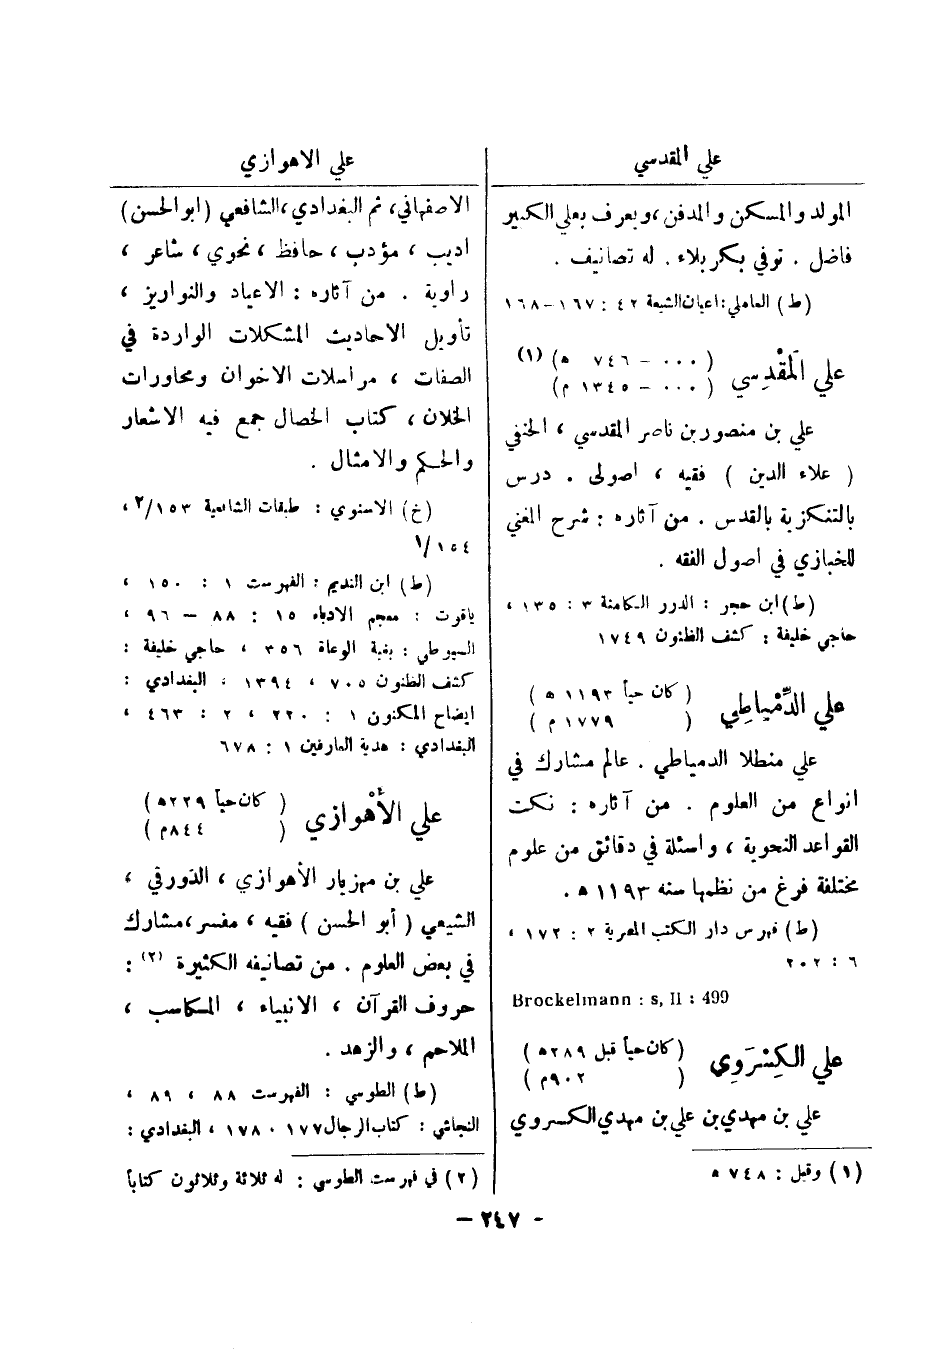 علي المقدسي
المولد والمسكن والمدفن، ويعرف بعلي الكبير
فاضل . توفي بكربلاء . له تصانيف .
(ط) العاملي: اعيان الشيعة ٤٢ : ١٦٧ - ١٦٨
علي المَقْدِسي
( ٠٠٠ - ٧٤٦ ھ) (١)
( ٠٠٠ - ١٣٤٥ م)
علي بن منصور بن ناصر المقدسي ، الحنفي
( علاء الدين ) فقيه ، اصولى . درس
بالتنكزية بالقدس . من آثاره : شرح المغني
للخبازي في اصول الفقه .
(ط) ابن حجر : الدرر الكامنة ٣ : ١٣٥ ،
حاجي خليفة : كشف الظنون ١٧٤٩
علي الدِّمْياطِي
( كان حياً ١١٩٣ ھ )
( ١٧٧٩ م )
علي منطلا الدمياطي . عالم مشارك في
انواع من العلوم . من آثاره : نكت
القواعد النحوية ، واسئلة في دقائق من علوم
مختلفة فرغ من نظمها سنه ١١٩٣ ھ .
(ط) فهرس دار الكتب المصرية ٢ : ١٧٢ ،
٦ : ٢٠٢
Brockelmann : s, II : 499
علي الكِسْرَوِي
(كان حياً قبل ٢٨٩ھ )
( ٩٠٢م )
علي بن مهدي بن علي بن مهدي الكسروي
(١) وقيل : ٧٤٨ ھ
علي الاهوازي
الاصفهاني، ثم البغدادي، الشافعي (ابو الحسن)
اديب ، مؤدب ، حافظ ، نحوي ، شاعر ،
راوية . من آثاره : الاعياد والنواريز ،
تأويل الاحاديث المشكلات الواردة في
الصفات ، مراسلات الاخوان ومحاورات
الخلان ، كتاب الخصال جمع فيه الاشعار
والحكم والامثال .
(خ) الاسنوي : طبقات الشافعية ١٥٣/٢ ،
١٥٤/١
(ط) ابن النديم : الفهرست ١ : ١٥٠ ،
ياقوت : معجم الادباء ١٥ : ٨٨ - ٩٦ ،
السيوطي : بغية الوعاة ٣٥٦ ، حاجي خليفة :
كشف الظنون ٧٠٥ ، ١٣٩٤ ، البغدادي :
ايضاح المكنون ١ : ٢٢٠ ، ٢ : ٤٦٣ ،
البغدادي : هدية العارفين ١ : ٦٧٨
علي الأَهْوازي
( كان حياً ٢٢٩ھ )
( ٨٤٤م )
علي بن مهزيار الأهوازي ، الدورقي ،
الشيعي ( أبو الحسن ) فقيه ، مفسر، مشارك
في بعض العلوم . من تصانيفه الكثيرة (٢) :
حروف القرآن ، الانبياء ، المكاسب ،
الملاحم ، والزهد .
(ط) الطوسي : الفهرست ٨٨ ، ٨٩ ،
النجاشي : كتاب الرجال ١٧٧ - ١٧٨ ، البغدادي :
(٢) في فهرست الطوسي : له ثلاثة وثلاثون كتاباً
- ٢٤٧ -